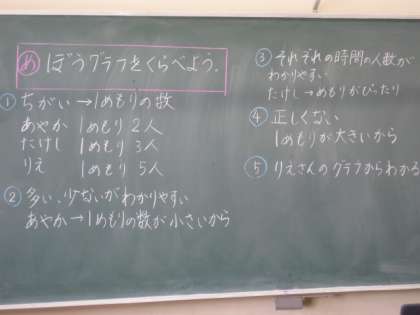 め ぼうグラフをくらべよう.
① ちがい→1めもりの数
あやか 1めもり 2人
たけし 1めもり 3人
りえ 1めもり 5人
② 多い、少ないがわかりやすい
あやか→1めもりの数が小さいから
③ それぞれの時間の人数が
わかりやすい
たけし→めもりがぴったり
④ 正しくない
1めもりが大きいから
⑤ りえさんのグラフからわかる